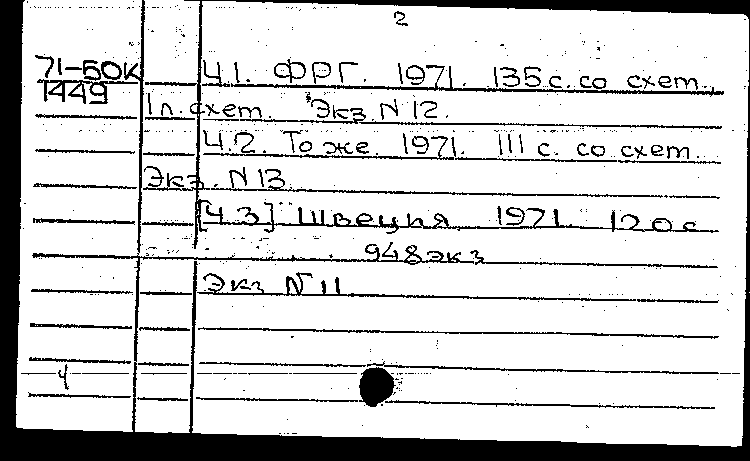 2
71-БОК Ч.1. ФРГ. 1971. 135 с. со схет.,
1449
1 л. схет. Экз. N 12.
Ч.2. То же. 1971. 111 с. со схет.
Экз. N 13
[Ч.3] Швеция 1971. 120 с
948 экз
Экз N 11
4